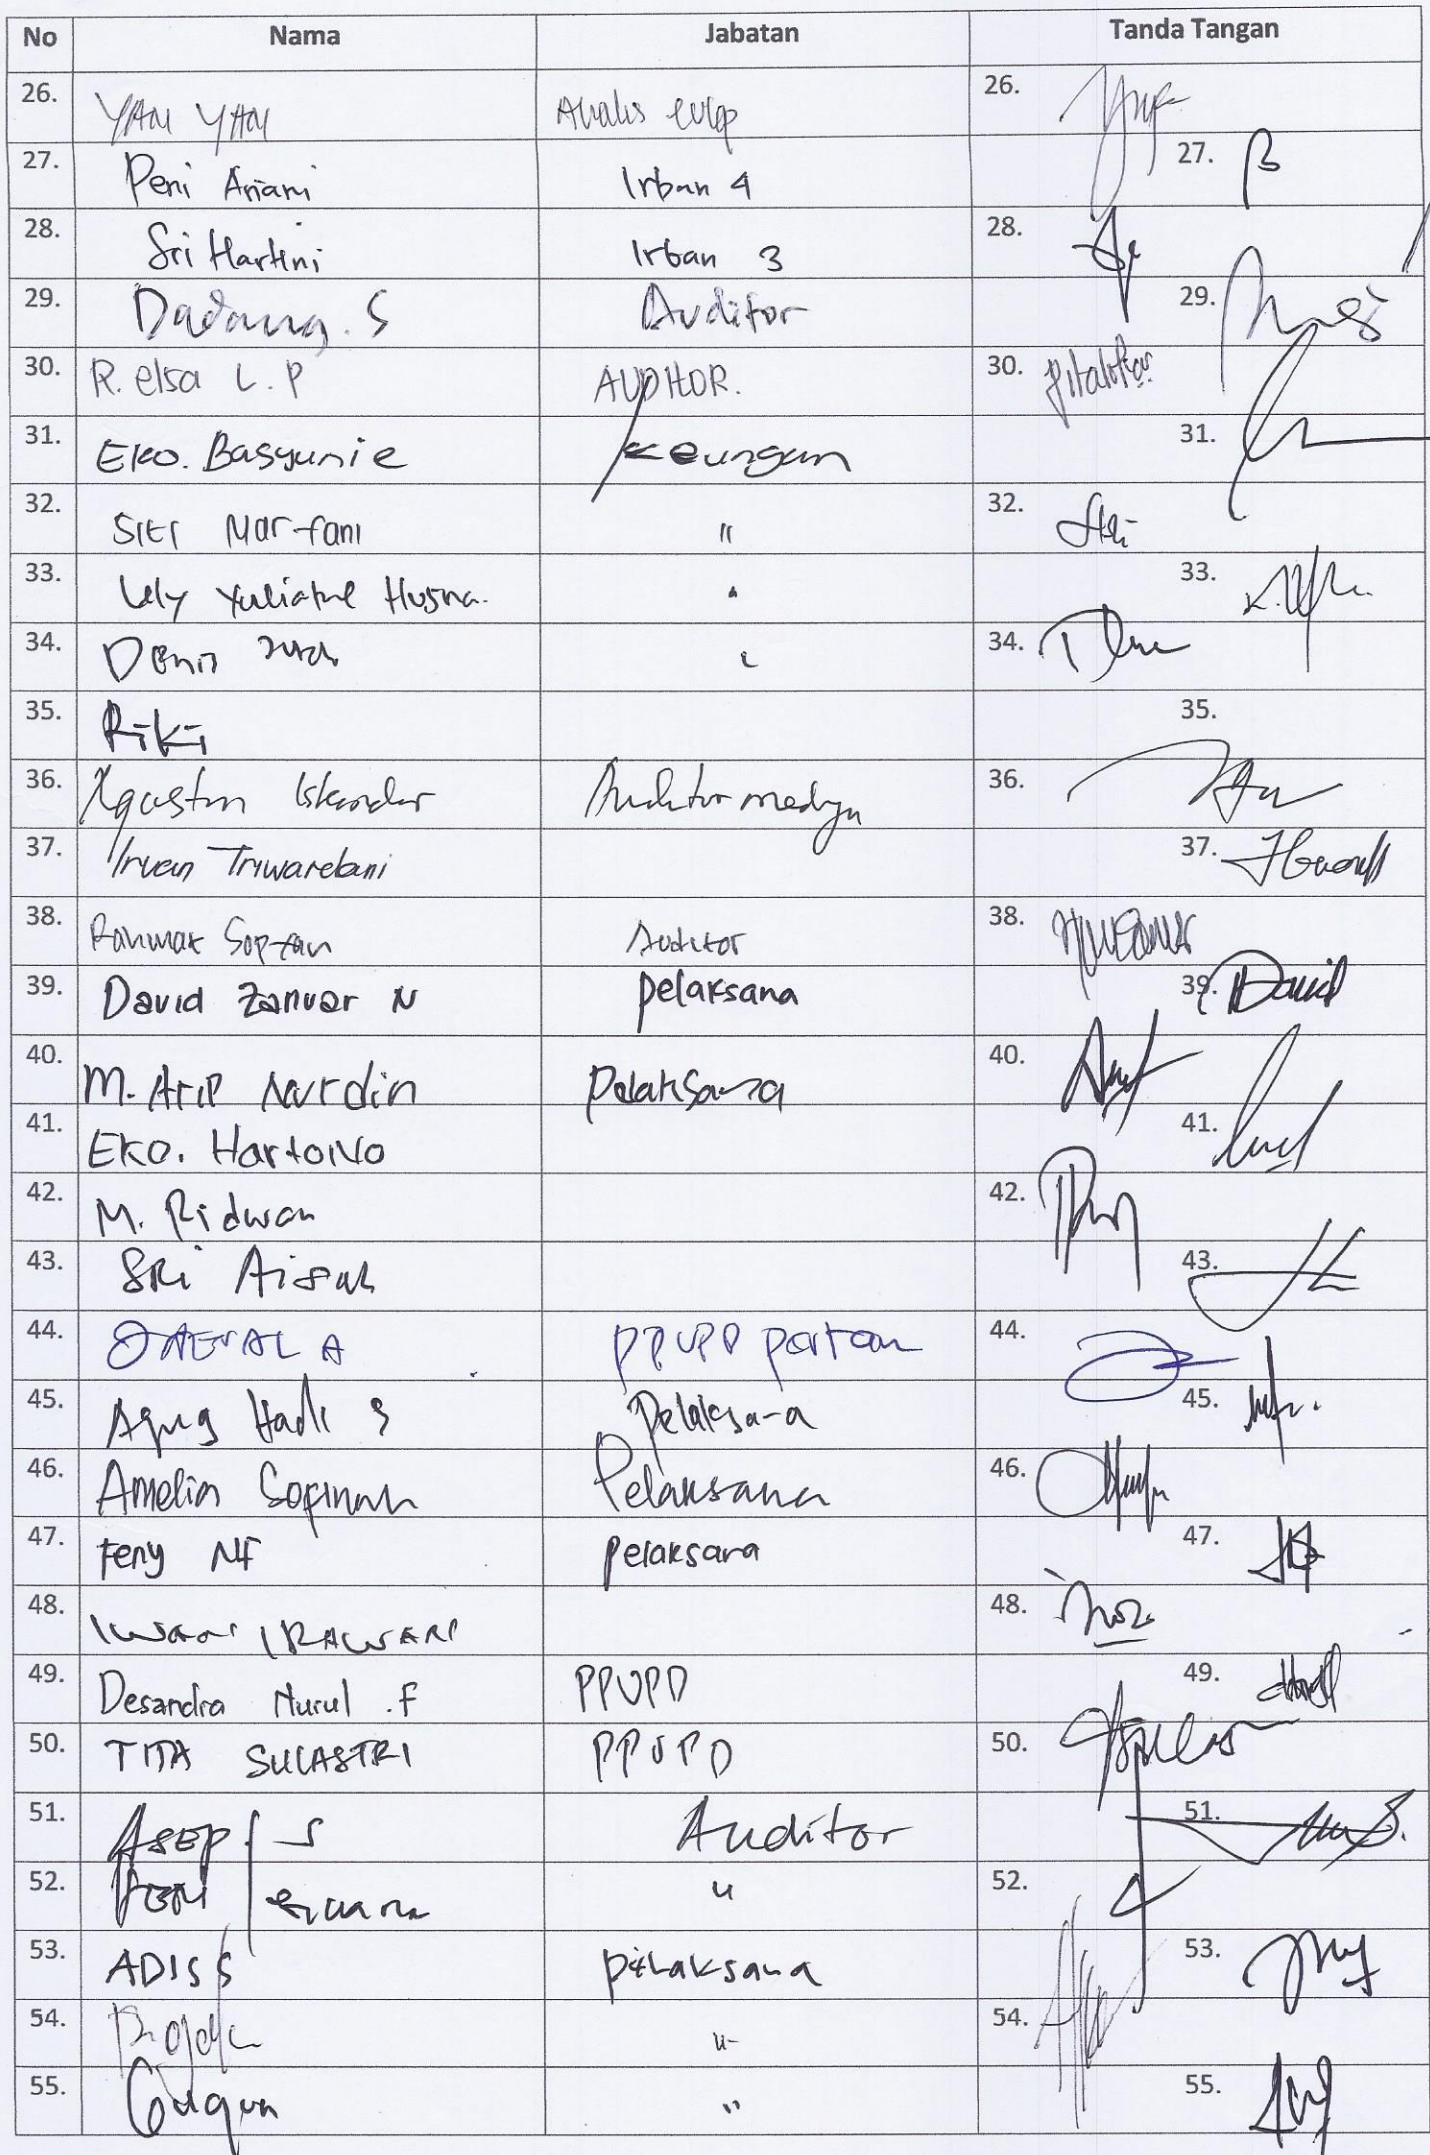 No Nama Jabatan Tanda Tangan
26. YAN YAN Analis evlap 26.
27. Peni Ariani Irban 4 27.
28. Sri Hartini Irban 3 28.
29. Dadang. S Auditor 29.
30. R. elsa L. P AUDITOR. 30.
31. EKO. Basyunie Keungan 31.
32. SITI Marfani " 32.
33. Lely Yuliatul Husna. " 33.
34. Deni " 34.
35. Riki 35.
36. Agustin Iskandar Auditor madya 36.
37. Irvan Triwardani 37.
38. Rahmat Soptan Auditor 38.
39. David Zanuar N pelaksana 39. David
40. M. Arip Nurdin Pelaksana 40.
41. EKO. Hartoyo 41.
42. M. Ridwan 42.
43. SRi Aisah 43.
44. A PPUPD pertam 44.
45. Agung Hadi S Pelaksana 45.
46. Amelia Sopinah Pelaksana 46.
47. Feny NF pelaksana 47.
48. Iwan IRAWAN 48.
49. Desandra Nurul .F PPUPD 49.
50. TITA SULASTRI PPUPD 50.
51. ASEP S Auditor 51.
52. " 52.
53. ADIS S pelaksana 53.
54. " 54.
55. " 55.